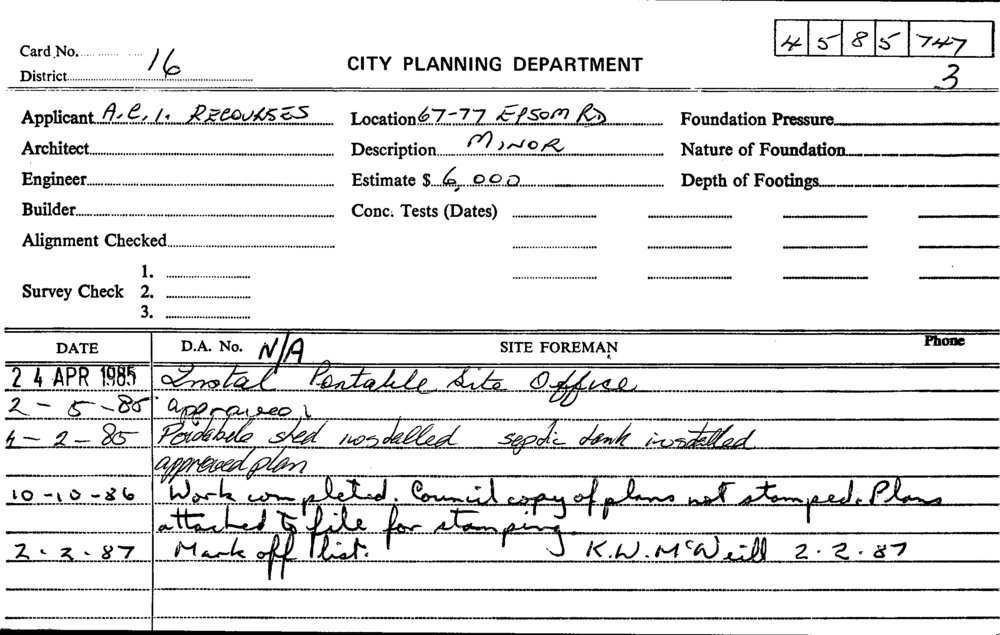 4 5 8 5 747
Card No.
16
District
CITY PLANNING DEPARTMENT
3
Applicant A.C.I. RECOURSES
Location 67-77 EPSOM RD
Foundation Pressure
Architect
Description MINOR
Nature of Foundation
Engineer
Estimate $ 6,000
Depth of Footings
Builder
Conc. Tests (Dates)
Alignment Checked
1.
Survey Check 2.
3.
DATE D.A. No. N/A SITE FOREMAN Phone
24 APR 1985 Instal Portable Site Office
2-5-85 approved
4-2-85 shed installed septic tank installed
approved plan
10-10-86 Work completed. Council copy of plans not stamped. Plans
attached to file for stamping
2.2.87 Mark off list. K.W. McNeill 2.2.87